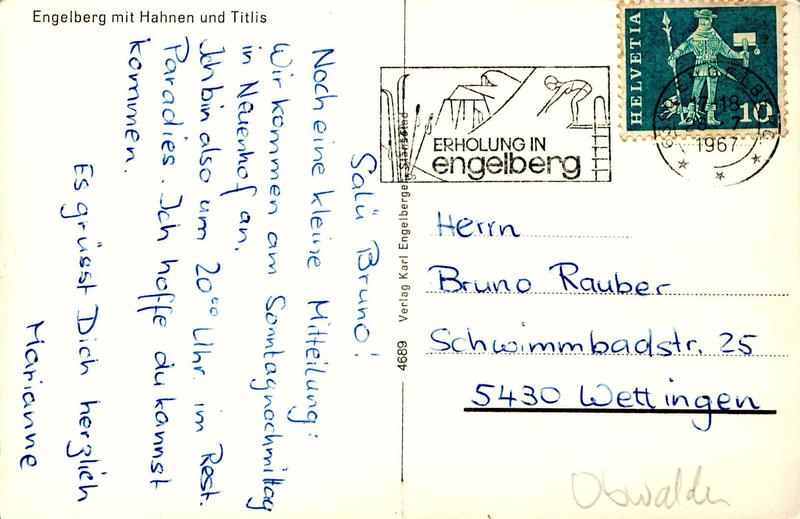 Engelberg mit Hahnen und Titlis
Salü Bruno!
Noch eine kleine Mitteilung:
Wir kommen am Sonntagnachmittag
in Neuenhof an.
Ich bin also um 20⁰⁰ Uhr im Rest.
Paradies. Ich hoffe du kannst
kommen.
Es grüsst Dich herzlich
Marianne
4689 Verlag Karl Engelberger, Stansstad
ERHOLUNG IN
engelberg
HELVETIA
10
ENGELBERG
17-18
1967
Herrn
Bruno Rauber
Schwimmbadstr. 25
5430 Wettingen
Obwalden